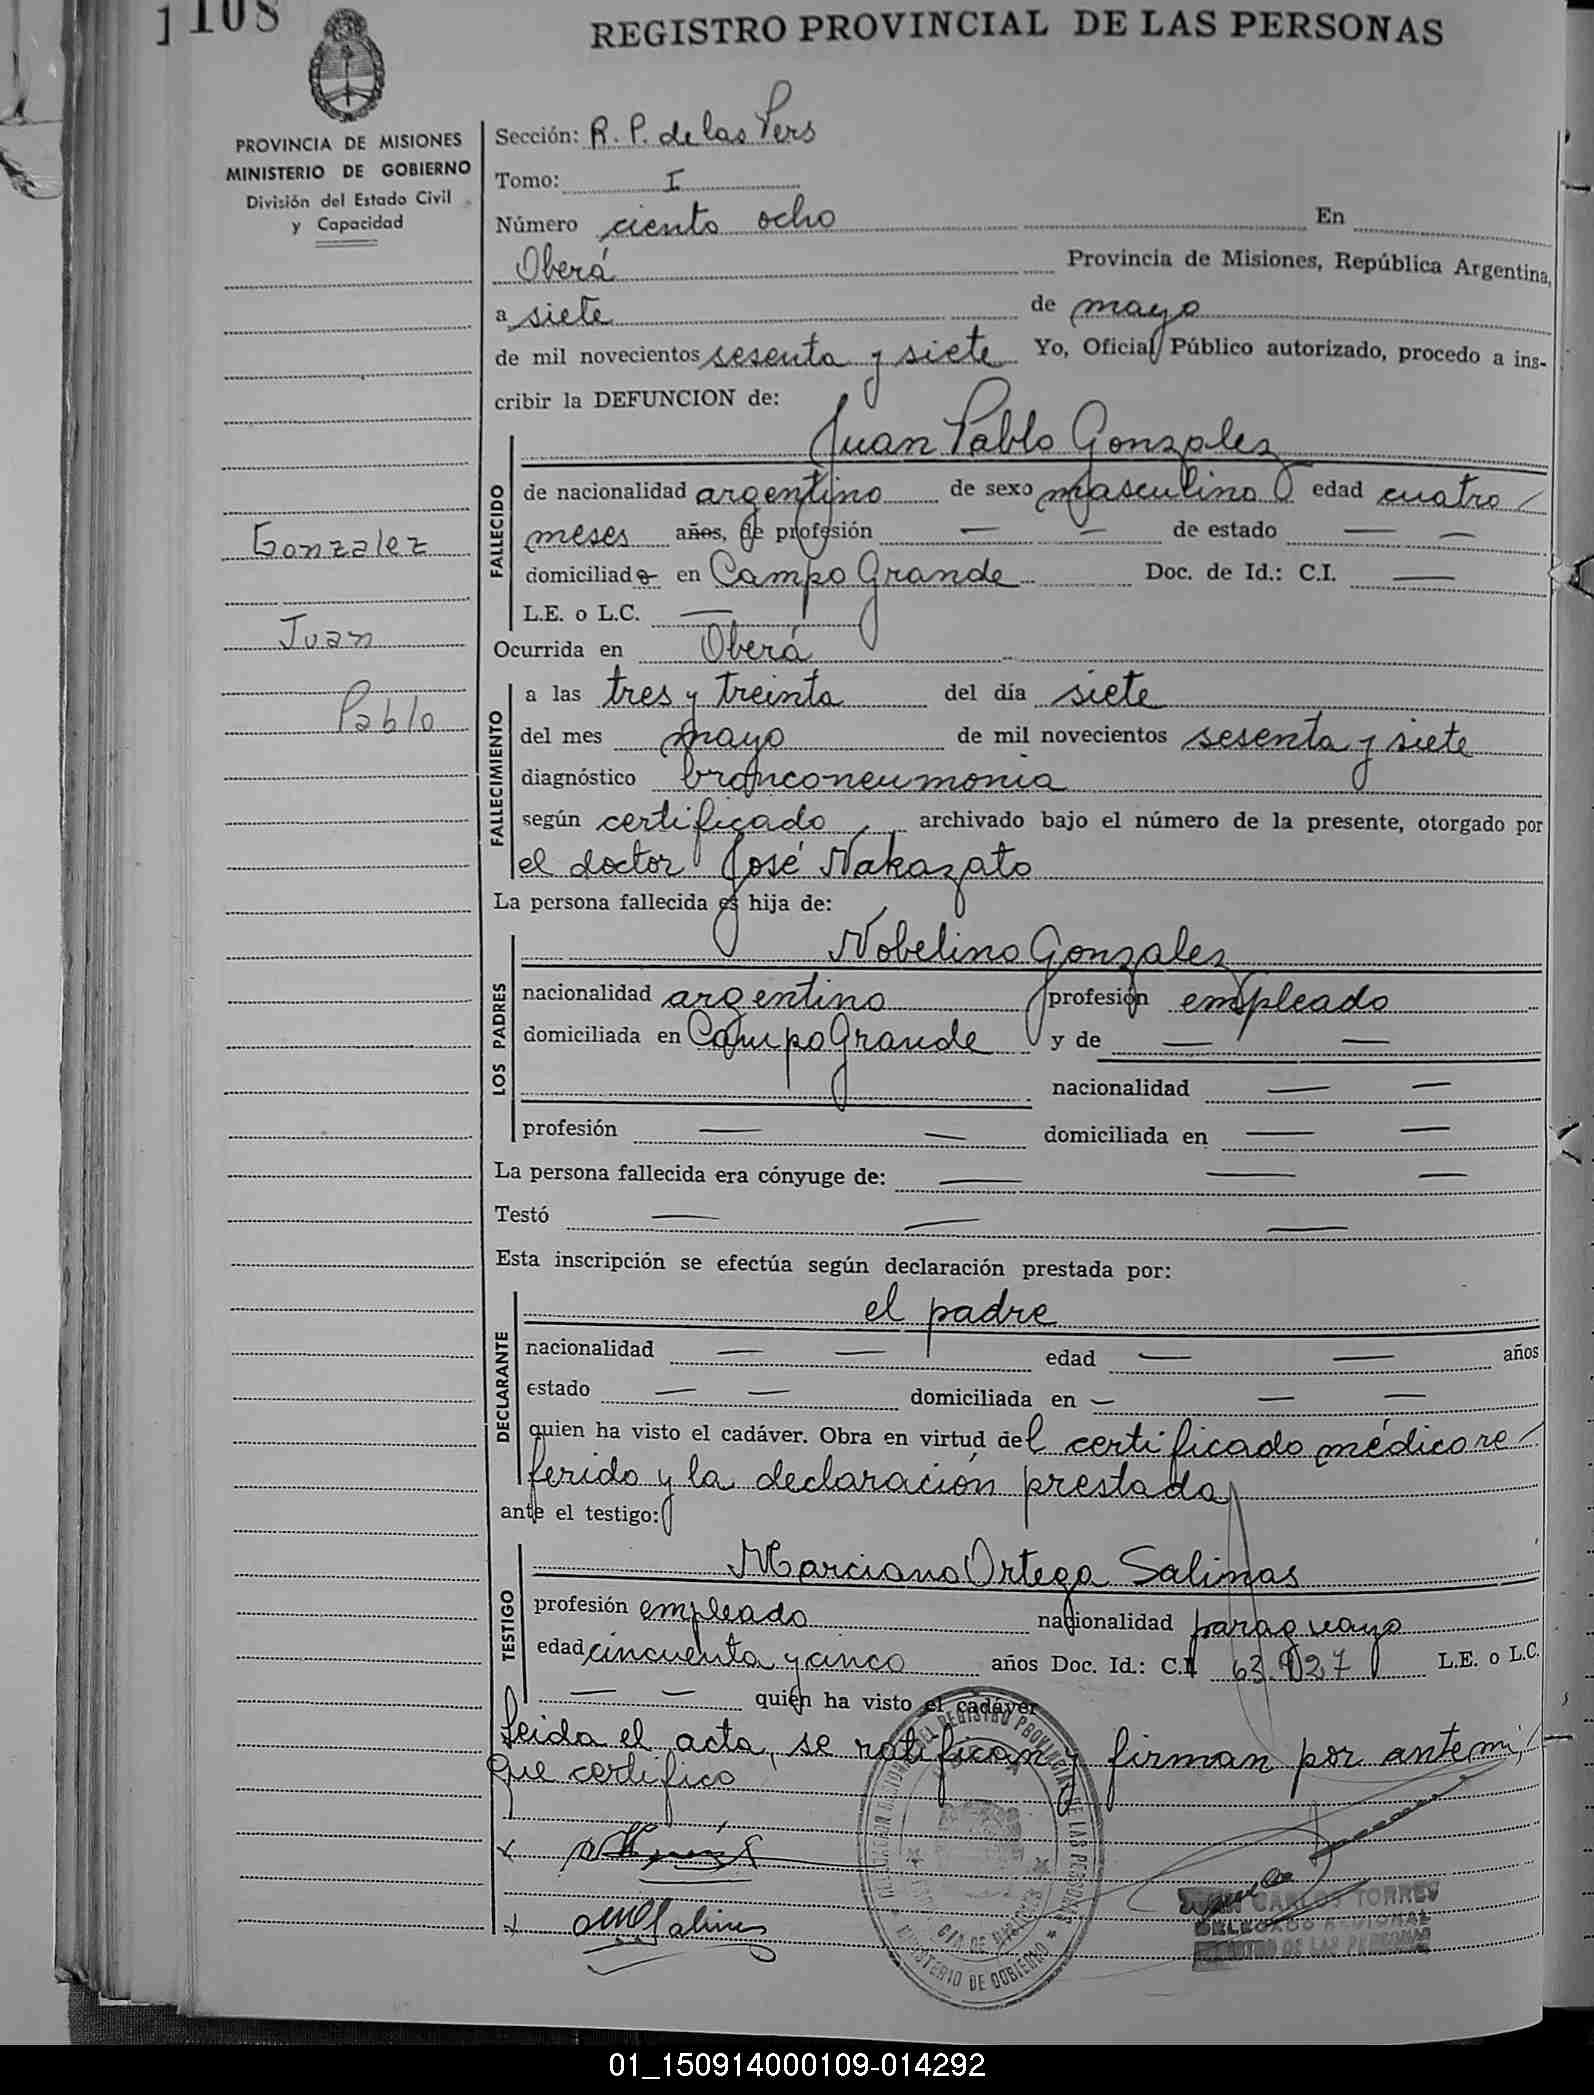 108
REGISTRO PROVINCIAL DE LAS PERSONAS
PROVINCIA DE MISIONES
MINISTERIO DE GOBIERNO
División del Estado Civil
y Capacidad
Gonzalez
Juan
Pablo
Sección: R. P. de las Pers
Tomo: I
Número ciento ocho En
Oberá Provincia de Misiones, República Argentina,
a siete de mayo
de mil novecientos sesenta y siete Yo, Oficial Público autorizado, procedo a ins-
cribir la DEFUNCION de:
Juan Pablo Gonzalez
FALLECIDO
de nacionalidad argentino de sexo masculino edad cuatro
meses años, de profesión — — de estado — —
domiciliado en Campo Grande Doc. de Id.: C.I. —
L.E. o L.C. —
Ocurrida en Oberá
FALLECIMIENTO
a las tres y treinta del día siete
del mes mayo de mil novecientos sesenta y siete
diagnóstico bronconeumonia
según certificado archivado bajo el número de la presente, otorgado por
el doctor José Nakazato
La persona fallecida es hija de:
LOS PADRES
Nobelino Gonzalez
nacionalidad argentino profesión empleado
domiciliada en Campo Grande y de — —
nacionalidad — —
profesión — — domiciliada en — —
La persona fallecida era cónyuge de: — — —
Testó — — —
Esta inscripción se efectúa según declaración prestada por:
DECLARANTE
el padre
nacionalidad — — edad — — años
estado — — domiciliada en — — —
quien ha visto el cadáver. Obra en virtud del certificado médico re
ferido y la declaración prestada
ante el testigo:
TESTIGO
Marciano Ortega Salinas
profesión empleado nacionalidad paraguayo
edad cincuenta y cinco años Doc. Id.: C.I 63.927 L.E. o L.C.
— — quien ha visto el cadáver
Leida el acta, se ratifican y firman por ante mi,
que certifico
JUAN CARLOS TORRES
DELEGADO REGIONAL
REGISTRO DE LAS PERSONAS
MINISTERIO DE GOBIERNO
01_150914000109-014292